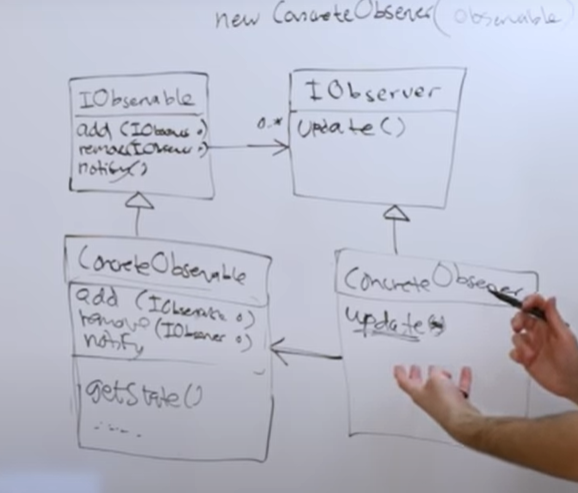 new ConcreteObserver( observable )
IObservable
add (IObserver o)
remove(IObserver o)
notify()
0..*
IObserver
update()
ConcreteObservable
add (IObservable o)
remove (IObserver o)
notify
getState()
.....
ConcreteObserver
update()